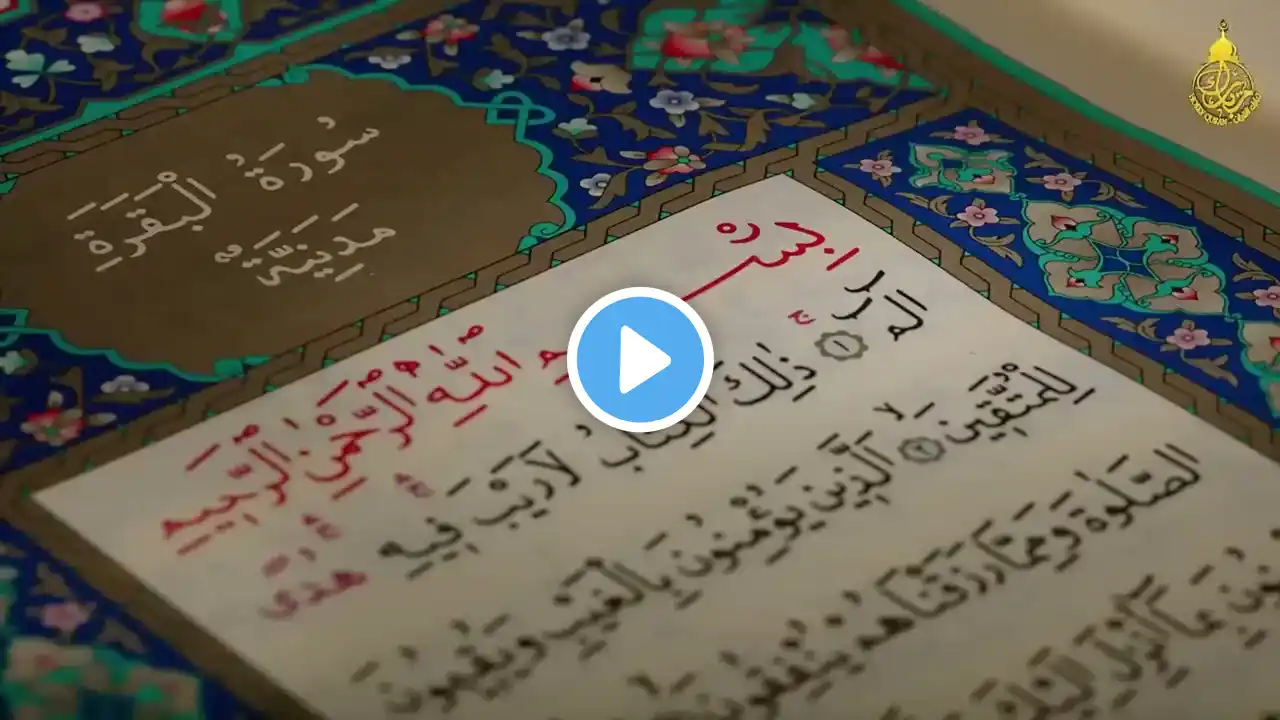 سُورَةُ الْبَقَرَةِ
مَدِينَيَّةٌ
بِسْمِ اللّٰهِ الرَّحْمٰنِ الرَّحِيمِ
الم ١ ذٰلِكَ الْكِتَابُ لَا رَيْبَ فِيهِ هُدًى
لِلْمُتَّقِينَ ٢ الَّذِينَ يُؤْمِنُونَ بِالْغَيْبِ وَيُقِيمُونَ
الصَّلٰوةَ وَمِمَّا رَزَقْنَاهُمْ يُنْفِقُونَ
بِمَا أُنْزِلَ إِلَيْكَ